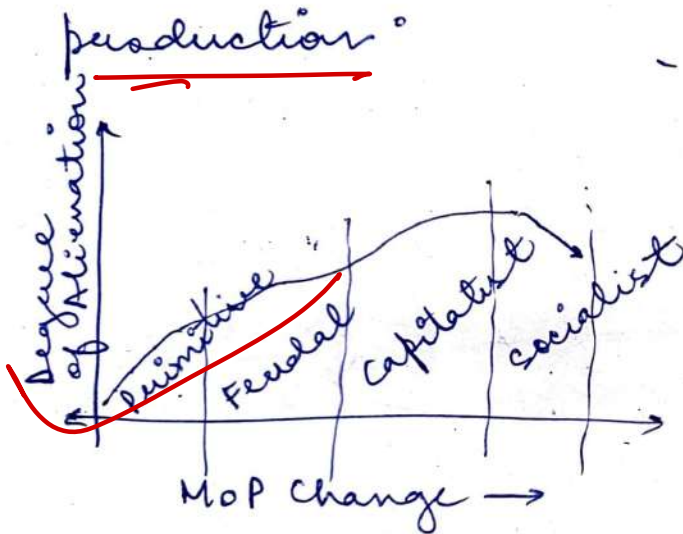 production:
Degree
of Alienation
Primitive
Feudal
Capitalist
Socialist
MOP Change →